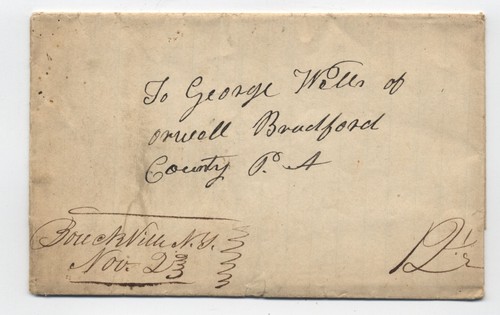 To George Wells of
orwell Bradford
County P. A
Bouckville N.Y.
Nov. 2
12 1/2